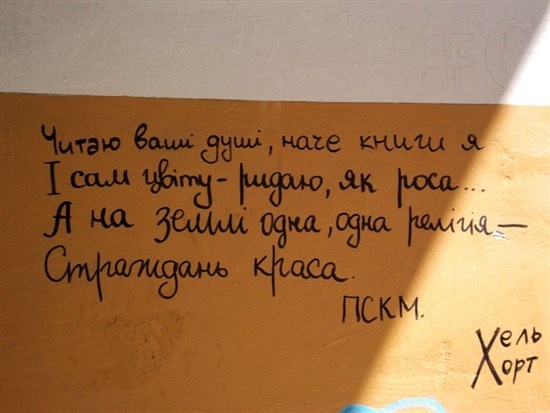 Читаю ваші душі, наче книги я
І сам цвіту - ридаю, як роса...
А на землі одна, одна релігія —
Страждань краса.
ПСКМ.
Хель
Хорт